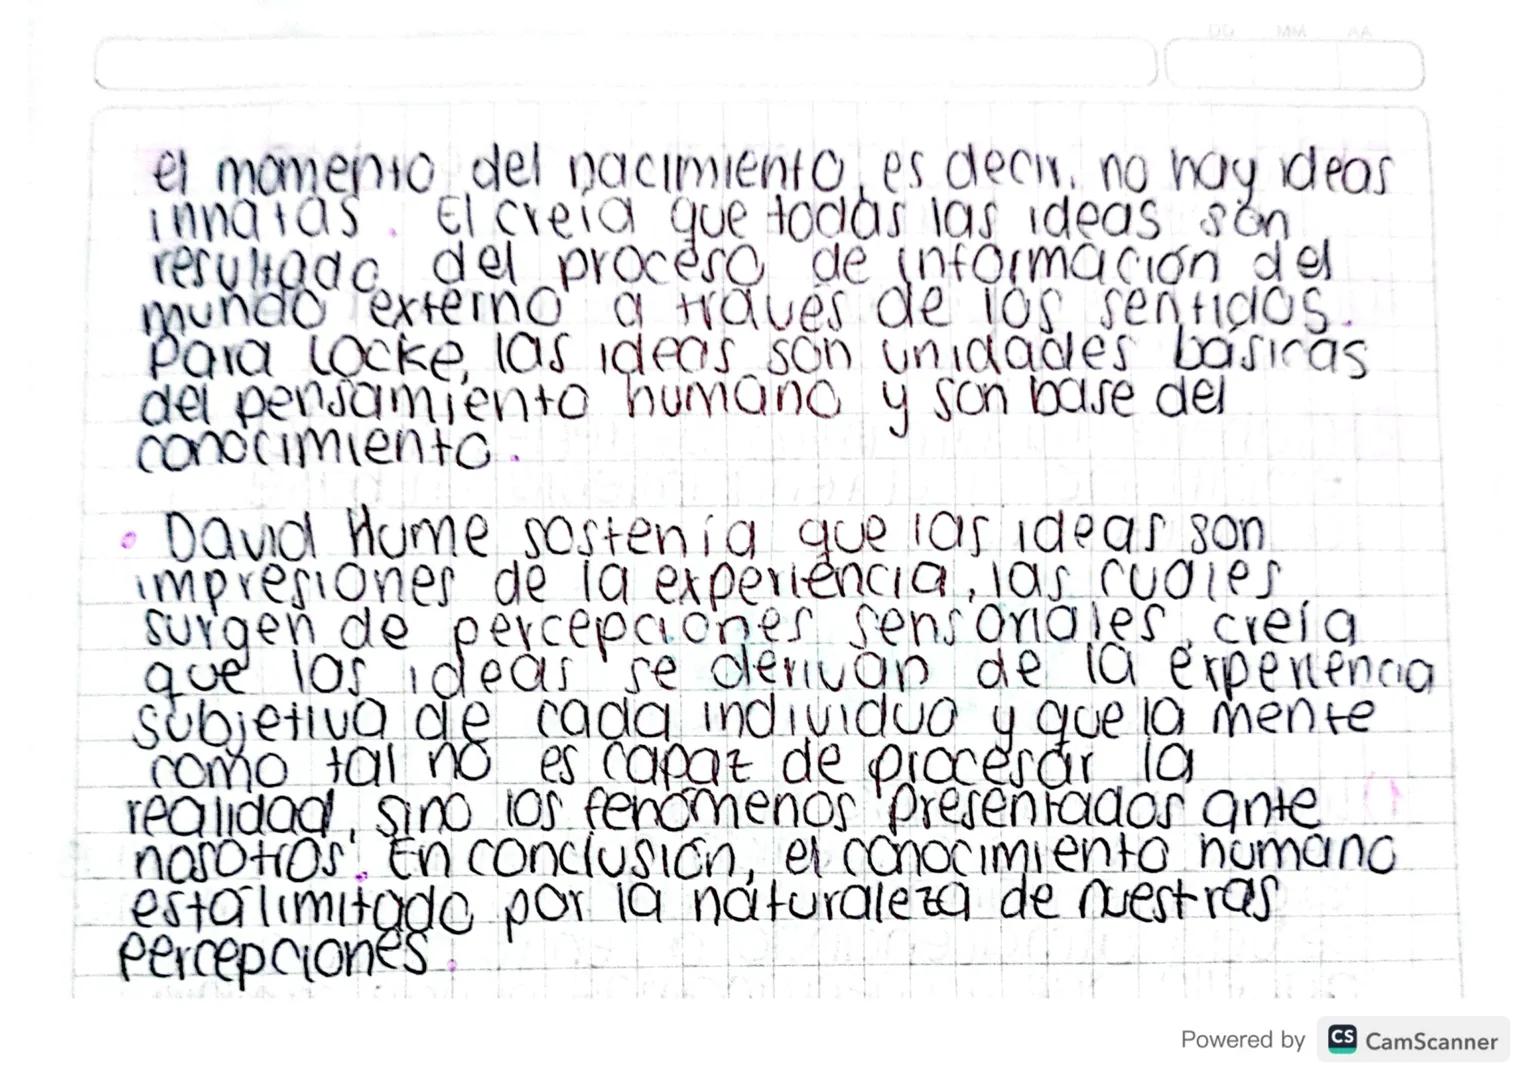 DD MM AA
el momento del nacimiento, es decir, no hay ideas
innatas. El creía que todas las ideas son
resultado del proceso de información del
mundo externo a través de los sentidos.
Para Locke, las ideas son unidades básicas
del pensamiento humano y son base del
conocimiento.
• David Hume sostenía que las ideas son
impresiones de la experiencia, las cuales
surgen de percepciones sensoriales, creía
que las ideas se derivan de la experiencia
subjetiva de cada individuo y que la mente
como tal no es capaz de procesar la
realidad, sino los fenómenos presentados ante
nosotros. En conclusión, el conocimiento humano
está limitado por la naturaleza de nuestras
percepciones.
Powered by CS CamScanner